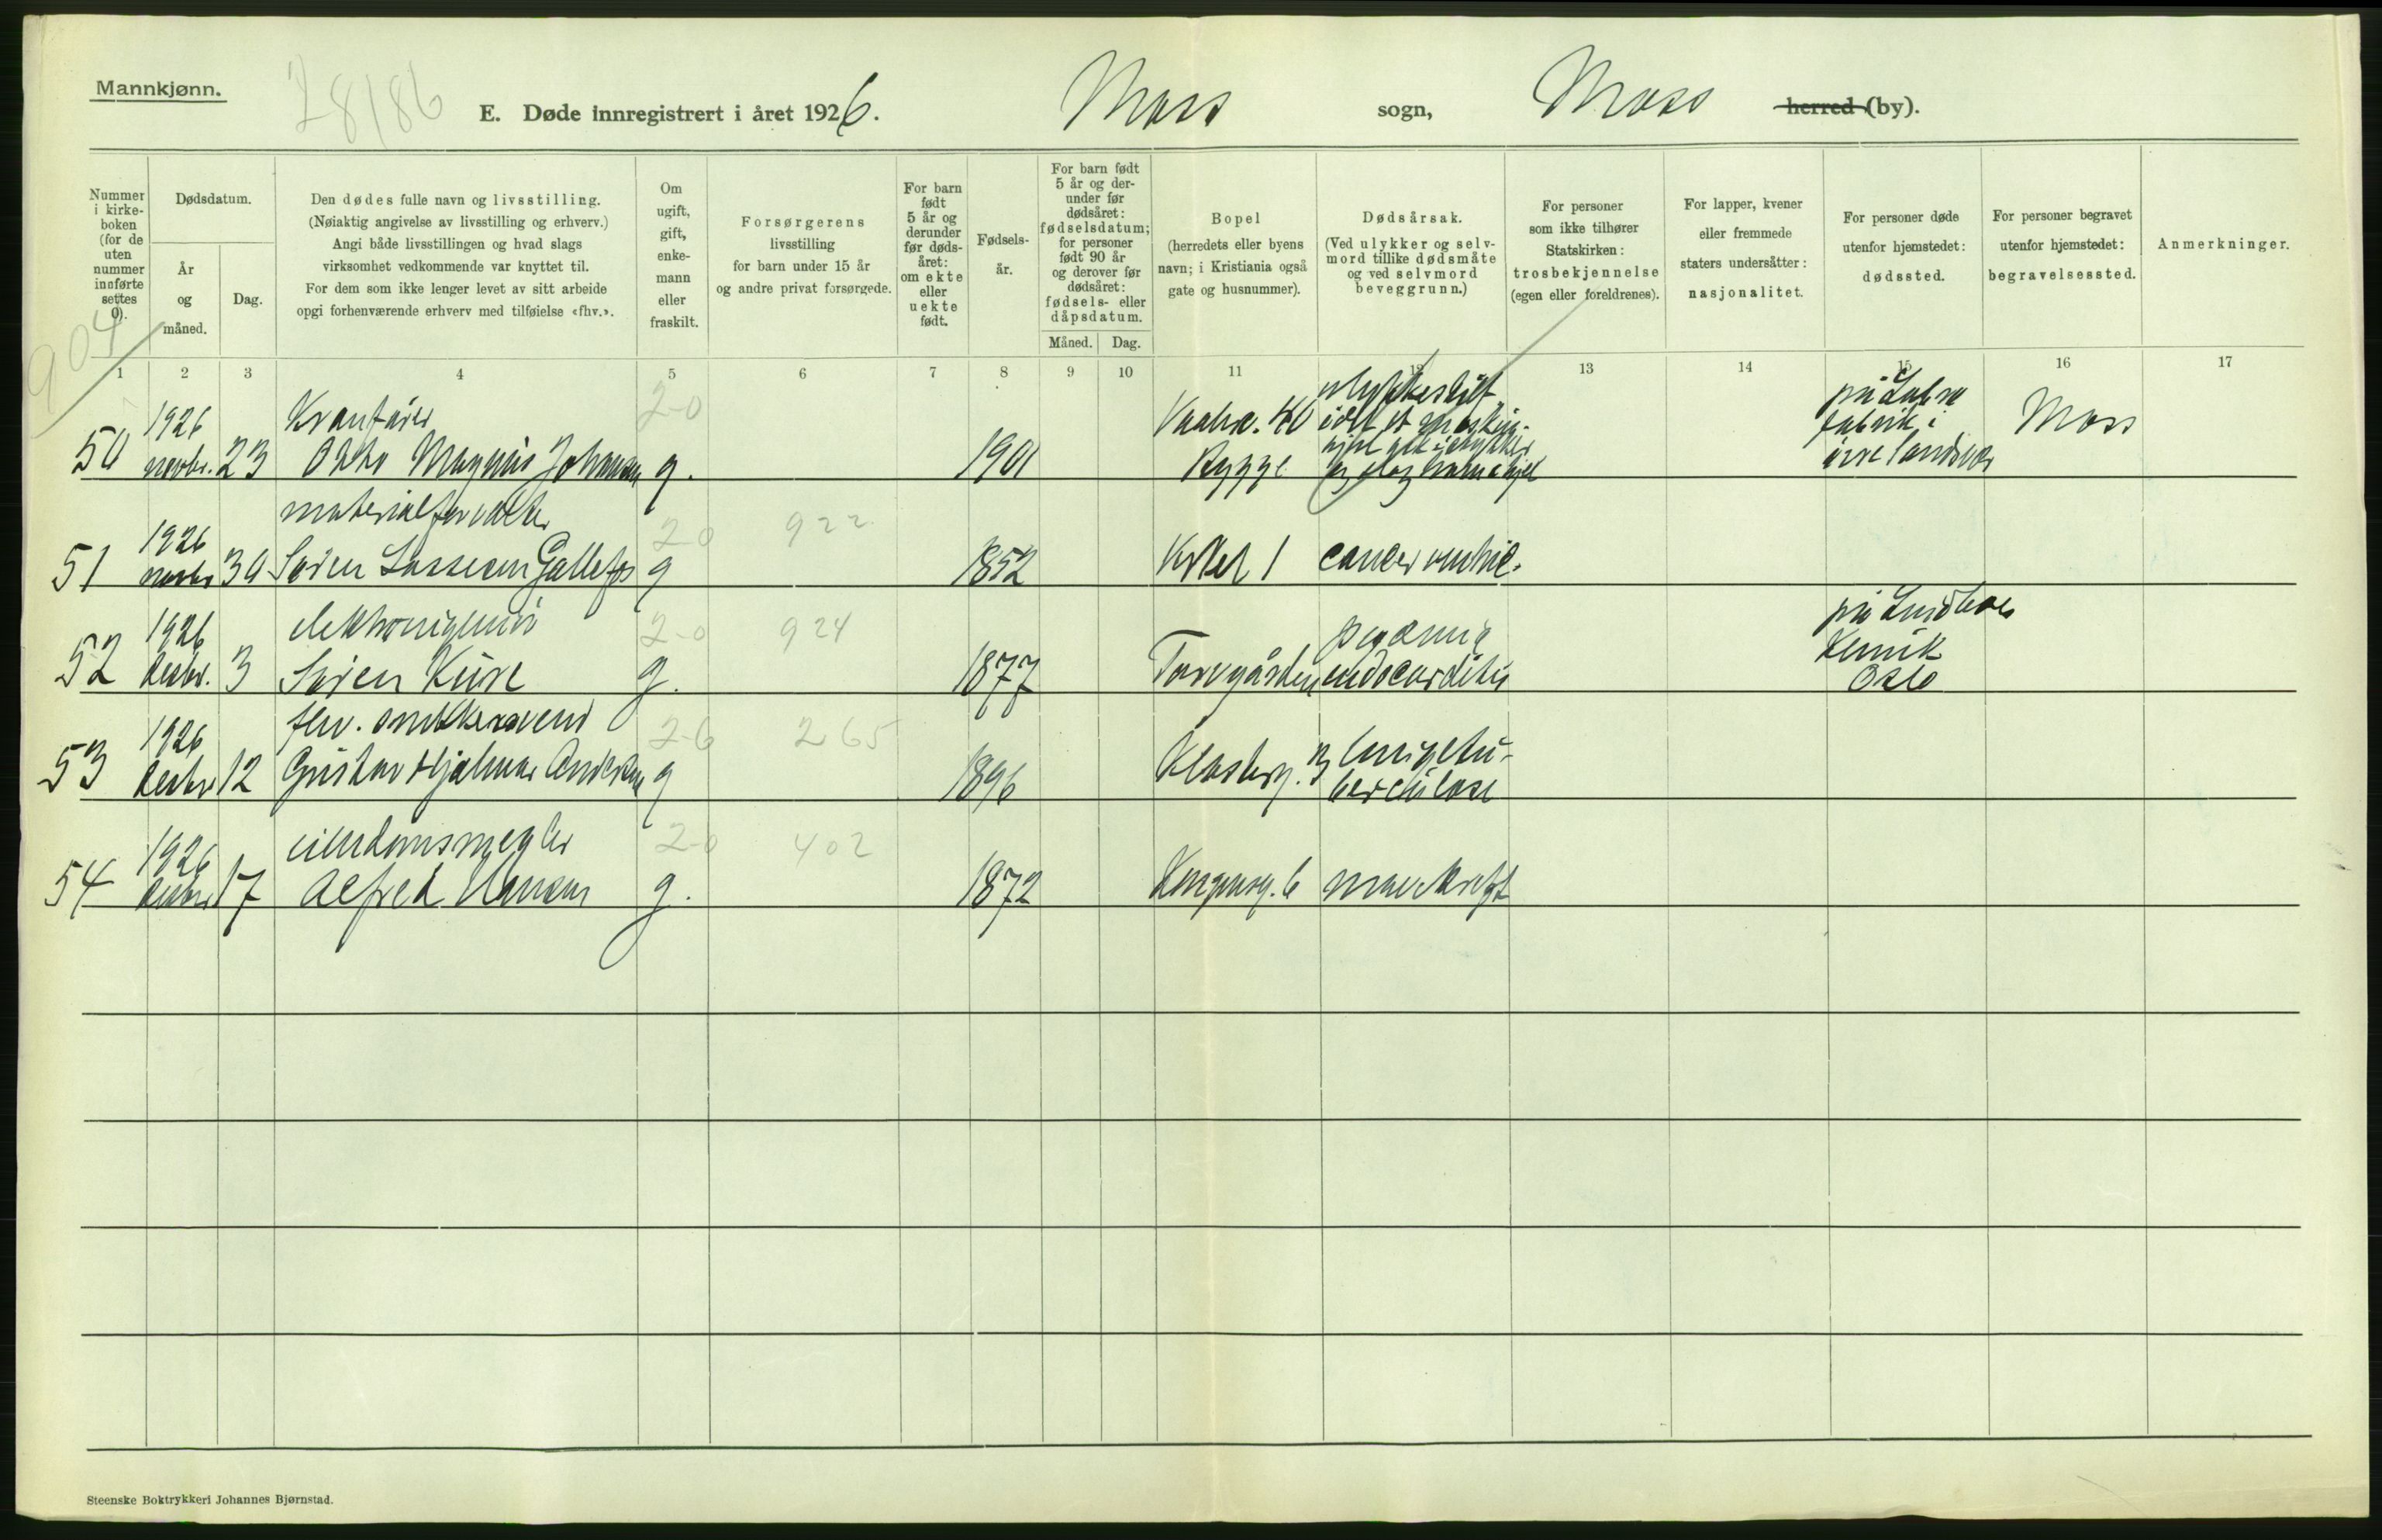 Mannkjønn.
28/86
E. Døde innregistrert i året 1926.
Moss sogn, Moss herred (by).
Nummer i kirke-boken (for de uten nummer innførte settes 0).
Dødsdatum.
År og måned.
Dag.
Den dødes fulle navn og livsstilling.
(Nøiaktig angivelse av livsstilling og erhverv.)
Angi både livsstillingen og hvad slags
virksomhet vedkommende var knyttet til.
For dem som ikke lenger levet av sitt arbeide
opgi forhenværende erhverv med tilføielse «fhv.».
Om ugift, gift, enke-mann eller fraskilt.
Forsørgerens
livsstilling
for barn under 15 år
og andre privat forsørgede.
For barn født 5 år og derunder før døds-året: om ekte eller uekte født.
Fødsels-år.
For barn født 5 år og der-under før dødsåret: fødselsdatum; for personer født 90 år og derover før dødsåret: fødsels- eller dåpsdatum.
Måned.
Dag.
Bopel
(herredets eller byens
navn; i Kristiania også
gate og husnummer).
Dødsårsak.
(Ved ulykker og selv-
mord tillike dødsmåte
og ved selvmord
beveggrunn.)
For personer
som ikke tilhører
Statskirken:
trosbekjennelse
(egen eller foreldrenes).
For lapper, kvener
eller fremmede
staters undersåtter:
nasjonalitet.
For personer døde
utenfor hjemstedet:
dødssted.
For personer begravet
utenfor hjemstedet:
begravelsessted.
Anmerkninger.
904
1 2 3 4 5 6 7 8 9 10 11 12 13 14 15 16 17
50 1926 novbr. 23 Kranfører
Otto Magnus Johansen g. 2-0 1901 40 Rygge ulykkestilf.
på
fabrik i
Moss
51 1926 novbr 30 materialforvalter
Søren Lassesen Gallefos g 2-0 922 1852 1 cancer
52 1926 desbr. 3 elektroingeniør
Søren Kure g. 2-0 924 1877 Torvgården
endocarditis
på
Klinik
Oslo
53 1926 desbr 12 fhv. snekkersvend
Gustav Hjalmar Andersen g 2-6 265 1896 Klosterg. lungetu-
berculose
54 1926 desbr 17 eiendomsmegler
Alfred Hansen g. 2-0 402 1872 Kongensg. 6 mavekreft
Steenske Boktrykkeri Johannes Bjørnstad.